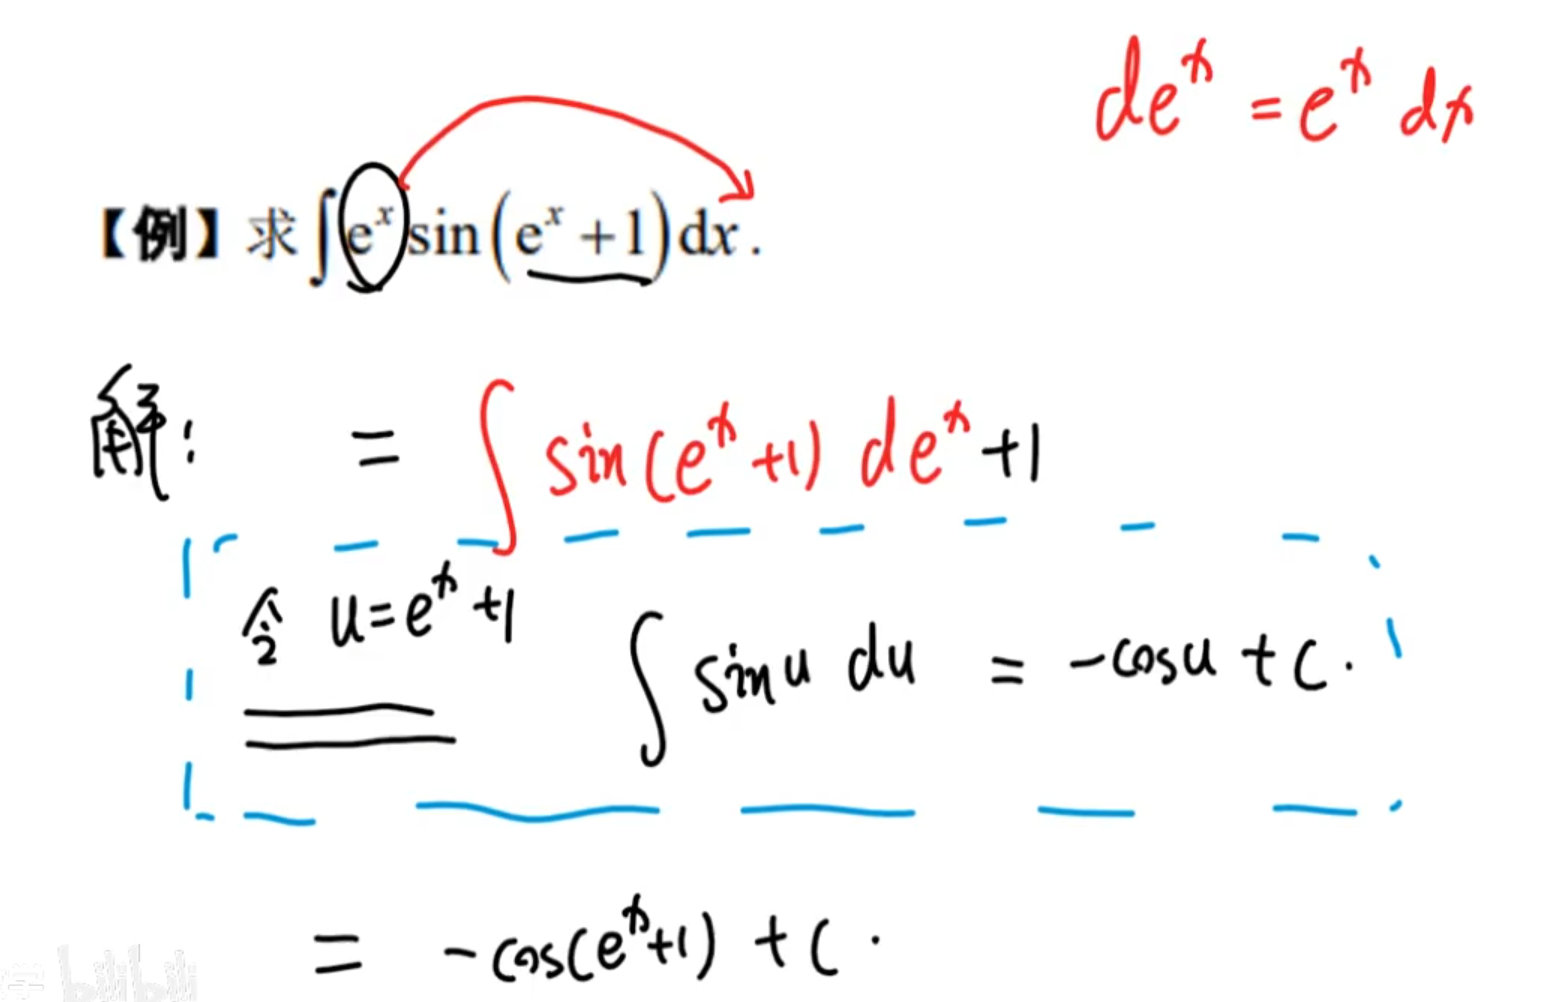 deˣ = eˣ dx
【例】求 ∫eˣ sin(eˣ +1)dx .
解: = ∫ sin(eˣ +1) deˣ +1
令 u=eˣ +1 ∫ sin u du = -cos u + C .
= -cos(eˣ+1) + C .
学 bilibili